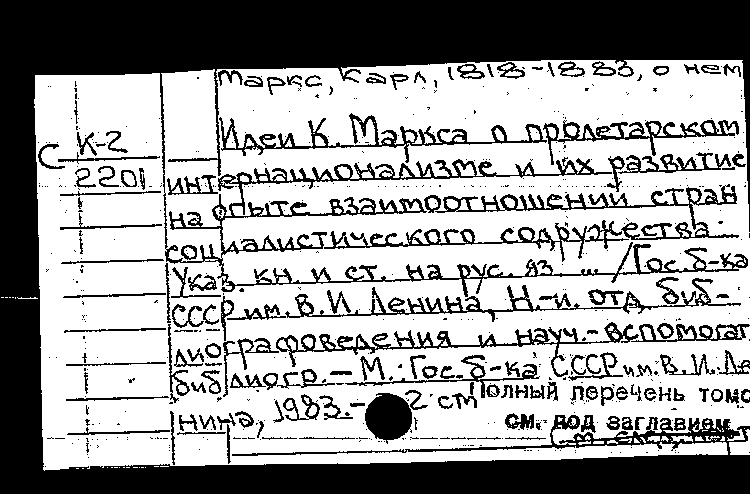 Маркс, Карл, 1818-1883, о нем
Идеи К. Маркса о пролетарском
С К-2
2201
интернационализме и их развитие
на опыте взаимоотношений стран
социалистического содружества:
Указ. кн. и ст. на рус. яз ... /Гос. б-ка
СССР им. В.И. Ленина, Н.-и. отд. биб-
лиографоведения и науч.-вспомогат
библиогр. — М.: Гос. б-ка СССР им. В. И. Ле
нина, 1983. — 2 см
Полный перечень томо
см. под заглавием
(см. след. карт